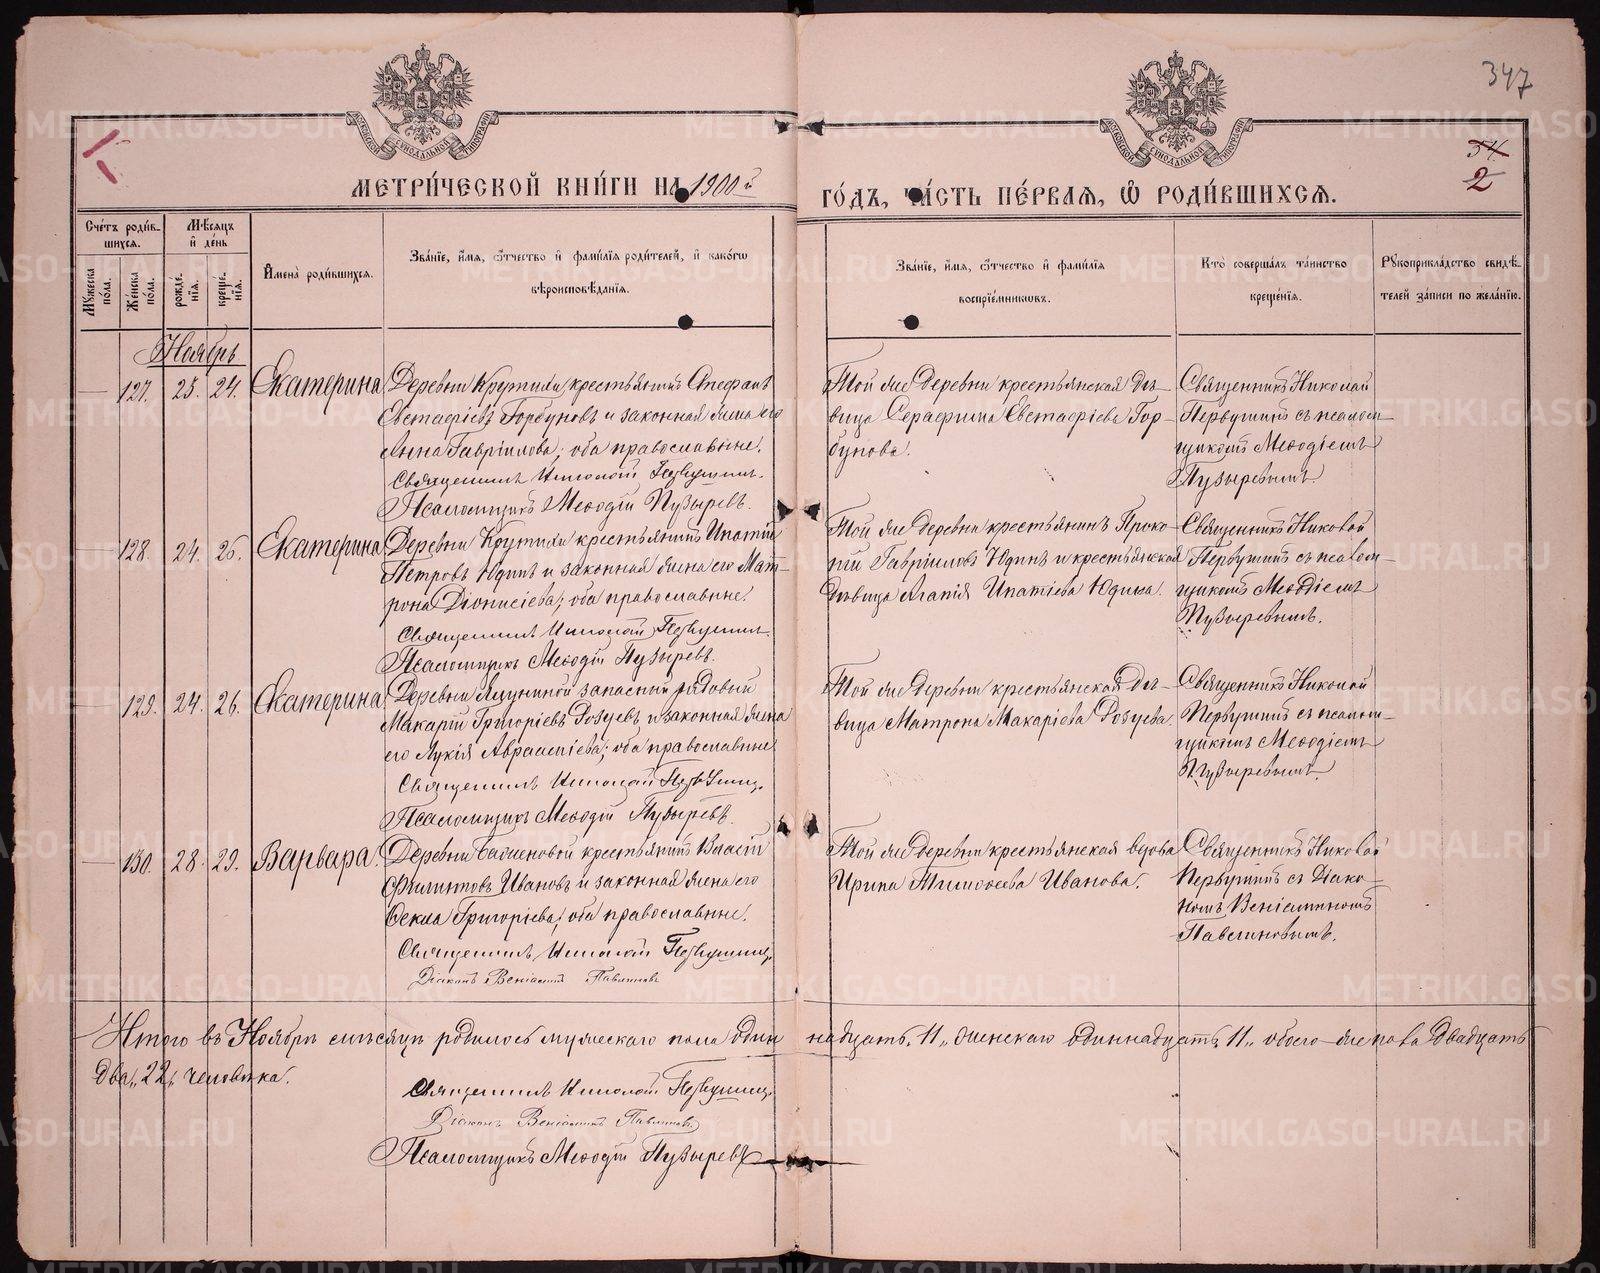 347
МЕТРИ́ЧЕСКОЙ КНИ́ГИ НА 1900 й
ГО́ДЪ, ЧА́СТЬ ПЕ́РВАЯ, Ѡ҆ РОДИ́ВШИХСЯ.
54
2
МОСКОВСКОЙ СѴНОДАЛЬНОЙ ТИПОГРАФІИ
МОСКОВСКОЙ СѴНОДАЛЬНОЙ ТИПОГРАФІИ
Сче́тъ роди́в-
шихся.
Мѣ́сяцъ
и де́нь
Мꙋ́жеска по́ла.
Же́нска по́ла.
рожде́-
нїя.
креще́-
нїя.
Имена̀ роди́вшихся.
Зва́нїе, и́мя, ѻ́тчество и фами́лїя роди́телей, и како́гѡ
вѣроисповѣ́данїя.
Зва́нїе, и́мя, ѻ́тчество и фами́лїя
воспрїе́мникѡвъ.
Кто̀ соверша́лъ та́инство
креще́нїя.
Рꙋкоприкла́дство свидѣ́-
телей за́писи по жела́нїю.
Ноябрь
127. 23. 24. Екатерина
Деревни Крутихи крестьянинъ Стефанъ
Евстафіевъ Горбуновъ и законная жена его
Анна Гавріилова; оба православные.
Священникъ Николай Первушинъ.
Псаломщикъ Меѳодій Пузыревъ.
Той же деревни крестьянская дѣ-
вица Серафима Евстафіева Гор-
бунова.
Священникъ Николай
Первушинъ съ псалом-
щикомъ Меѳодіемъ
Пузыревымъ
128. 24. 26. Екатерина
Деревни Крутихи крестьянинъ Ипатій
Петровъ Юдинъ и законная жена его Мат-
рона Діонисіева; оба православные.
Священникъ Николай Первушинъ.
Псаломщикъ Меѳодій Пузыревъ.
Той же деревни крестьянинъ Проко-
пій Гавріиловъ Юдинъ и крестьянская
дѣвица Агапія Ипатіева Юдина.
Священникъ Николай
Первушинъ съ псалом-
щикомъ Меѳодіемъ
Пузыревымъ.
129. 24. 26. Екатерина
Деревни запасный рядовый
Макарій Григоріевъ и законная жена
его Лукія; оба православные
Священникъ Николай Первушинъ.
Псаломщикъ Меѳодій Пузыревъ.
Той же деревни крестьянская дѣ-
вица Матрона Макаріева
Священникъ Николай
Первушинъ съ псалом-
щикомъ Меѳодіемъ
Пузыревымъ
130. 28. 29. Варвара.
Деревни крестьянинъ
Ивановъ и законная жена его
Ѳекла Григоріева; оба православные.
Священникъ Николай Первушинъ.
Діаконъ Веніаминъ Павлиновъ
Той же деревни крестьянская вдова
Ирина Тимоѳеева Иванова.
Священникъ Николай
Первушинъ съ діако-
номъ Веніаминомъ
Павлиновымъ.
Итого въ Ноябрѣ мѣсяцѣ родилось мужескаго пола один
надцать „11„ женскаго одиннадцать „11„ обоего же пола двадцать
два „22„ человѣка.
Священникъ Николай Первушинъ
Діаконъ Веніаминъ Павлиновъ
Псаломщикъ Меѳодій Пузыревъ
METRIKI.GASO-URAL.RU